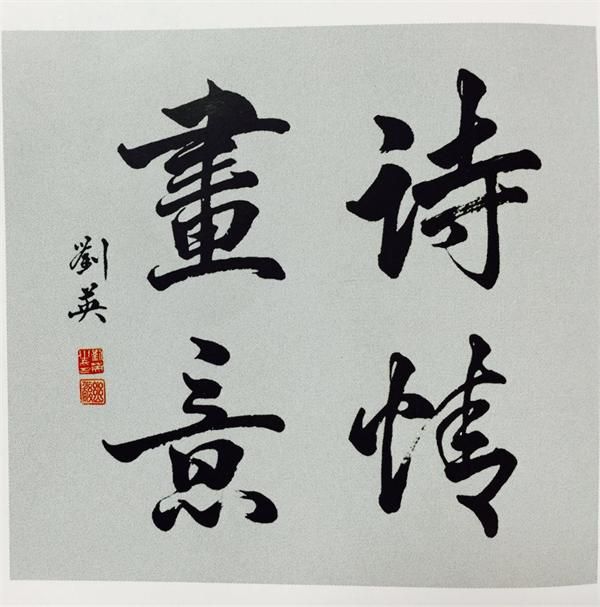 诗情
畫意
劉英